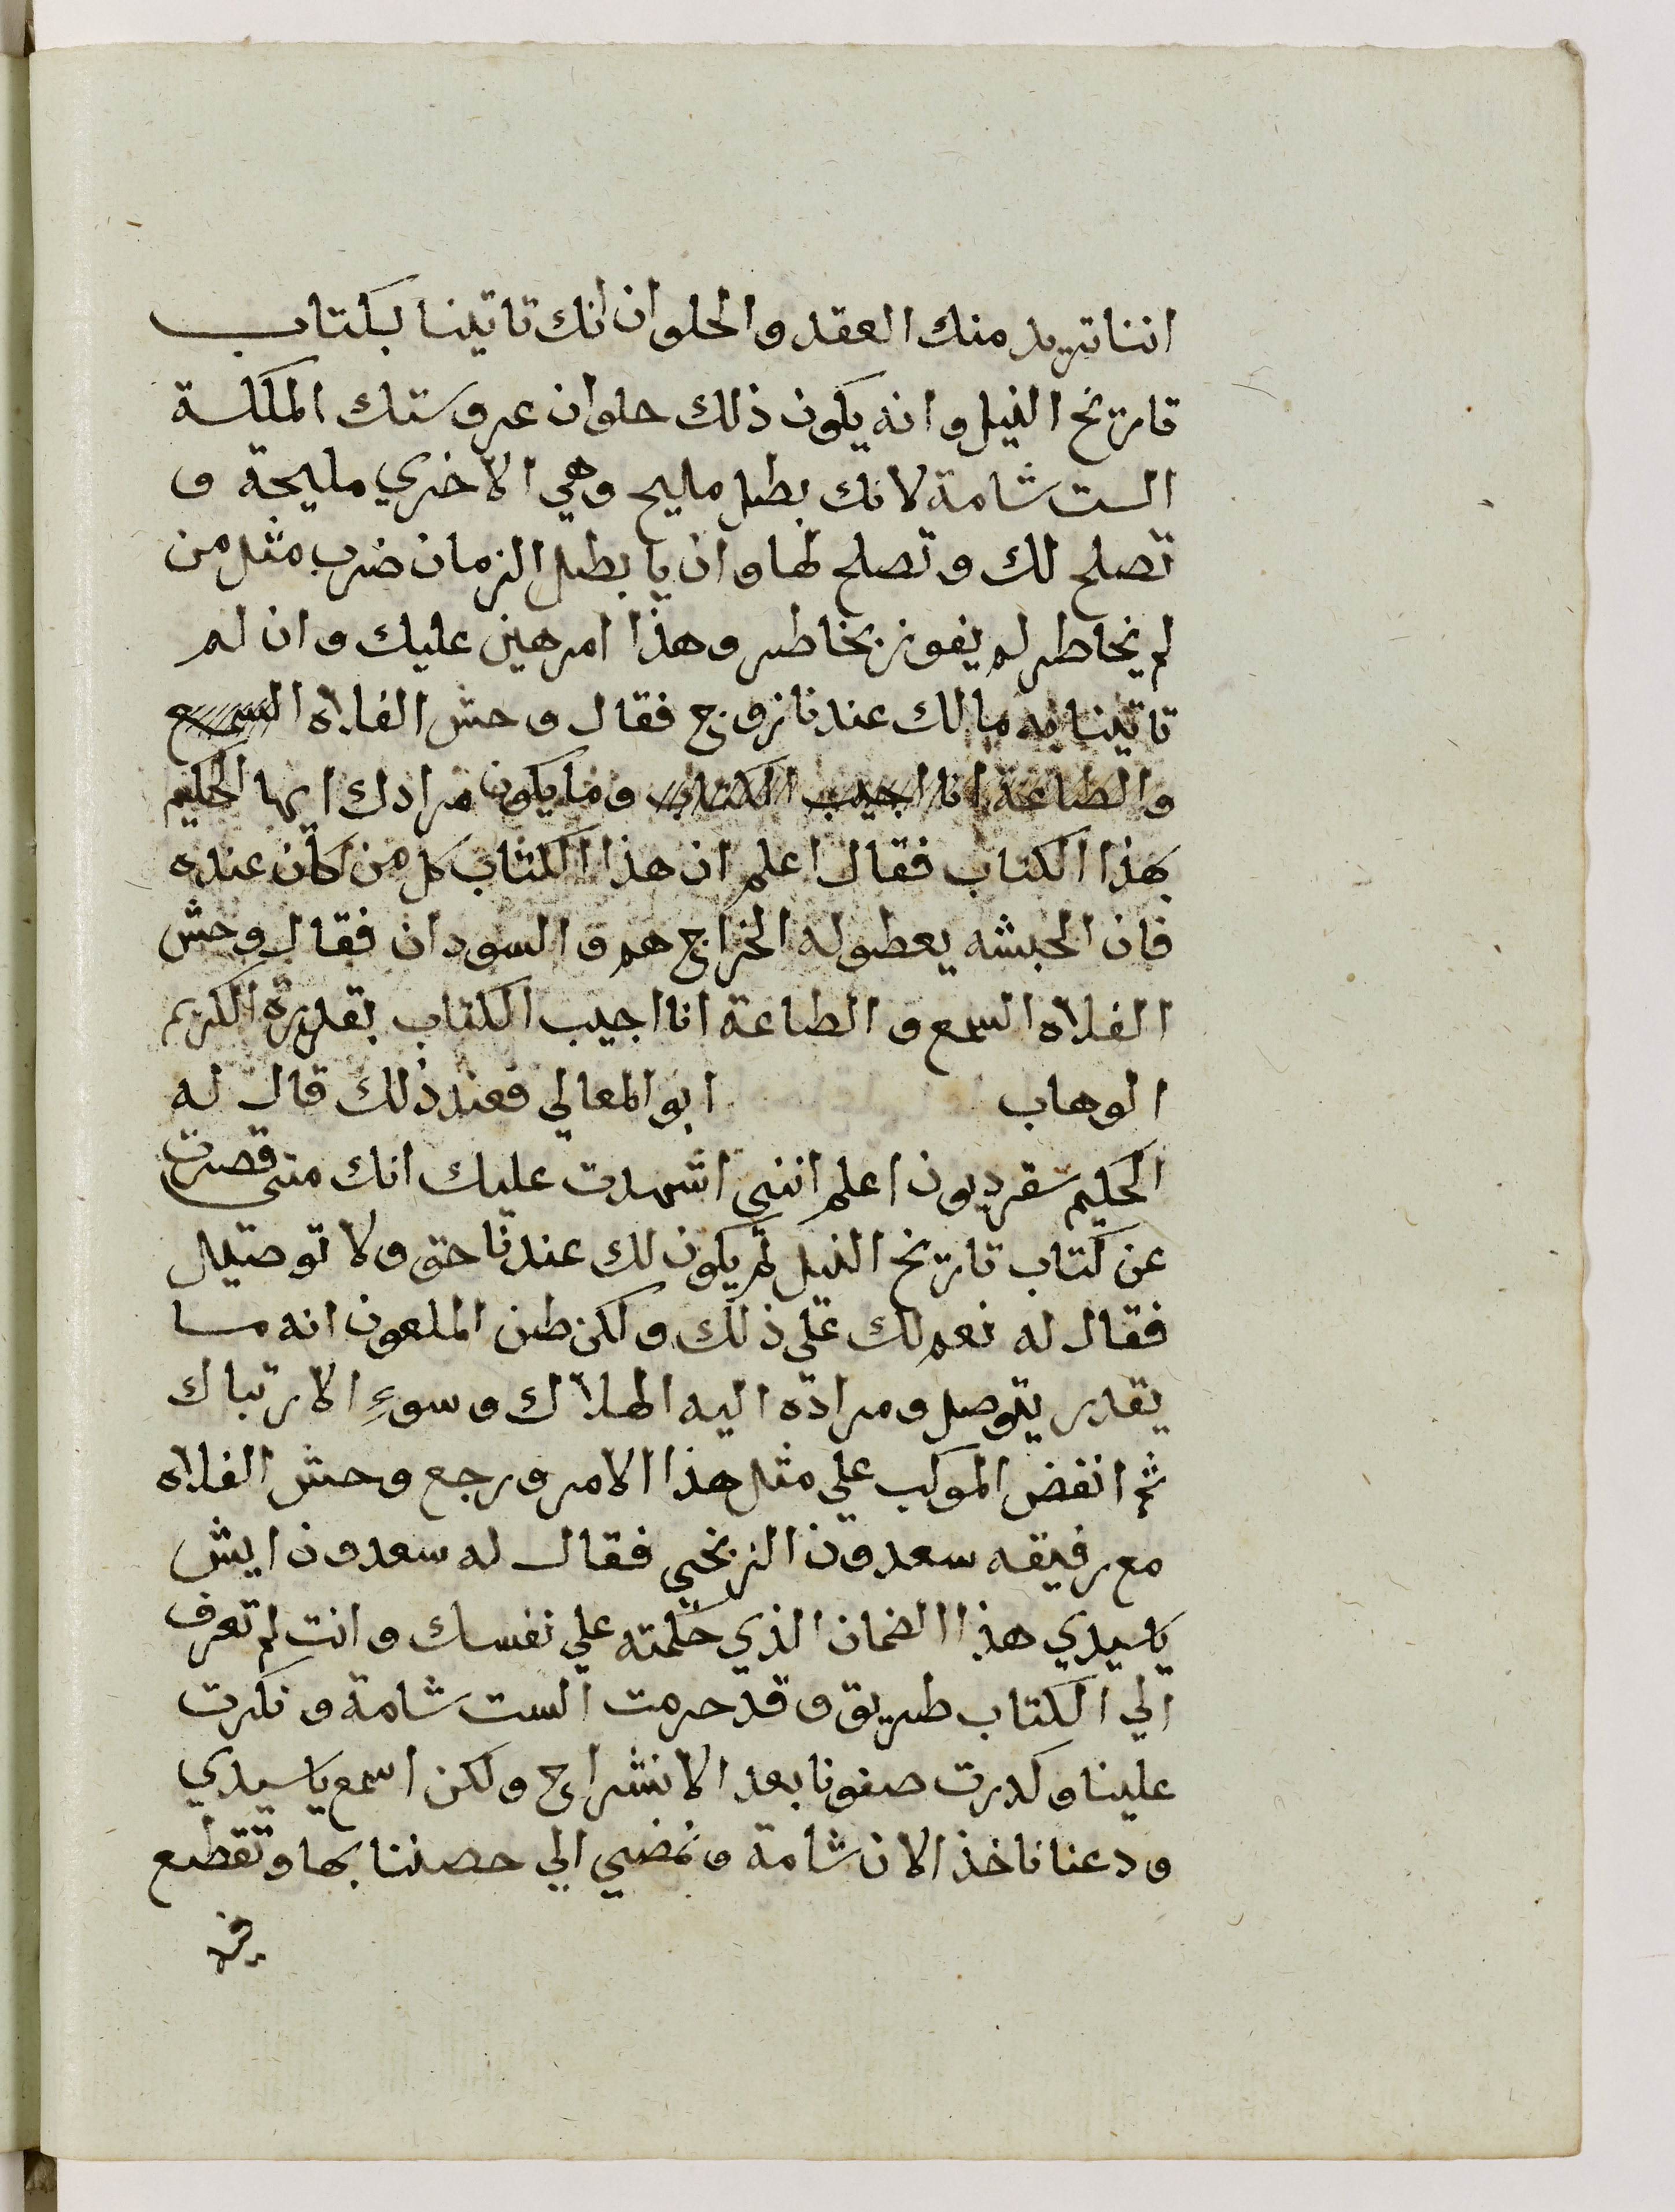 اننا نريد منك العقد والحلوان انك تاتينا بكتاب
تاريخ النيل وانه يكون ذلك حلوان عروستك الملكة
الست شامة لانك بطل مليح وهي الاخري مليحة و
تصلح لك وتصلح لها وان يا بطل الزمان ضرب مثل من
لم يخاطر لم يفوز بخاطر وهذا امر هين عليك وان لم
تاتينا به مالك عندنا زوج فقال وحش الفلاه السمع
والطاعة انا اجيب الكتاب وما يكون مرادك ايها الحكيم
بهذا الكتاب فقال اعلم ان هذا الكتاب كل من كان عنده
فان الحبشه يعطوله الخراج هم والسودان فقال وحش
الفلاه السمع والطاعة انا اجيب الكتاب بقدرة الكريم
الوهاب ابو المعالي فعند ذلك قال له
الحكيم سقرديون اعلم انني اشهدت عليك انك متي قصرت
عن كتاب تاريخ النيل لم يكون لك عندنا حق ولا توصيل
فقال له نعم لك علي ذلك ولكن ظن الملعون انه ما
يقدر يتوصل ومراده اليه الهلاك وسوءِ الارتباك
ثم انفض الموكب علي مثل هذا الامر ورجع وحش الفلاه
مع رفيقه سعدون الزنجي فقال له سعدون ايش
ياسيدي هذا الضمان الذي حملته علي نفسك وانت لم تعرف
الي الكتاب طريق وقد حرمت الست شامة ونكرت
علينا وكدرت صفونا بعد الانشراح ولكن اسمع ياسيدي
ودعنا ناخذ الان شامة ونمضي الي حصننا بها ونقطع
في